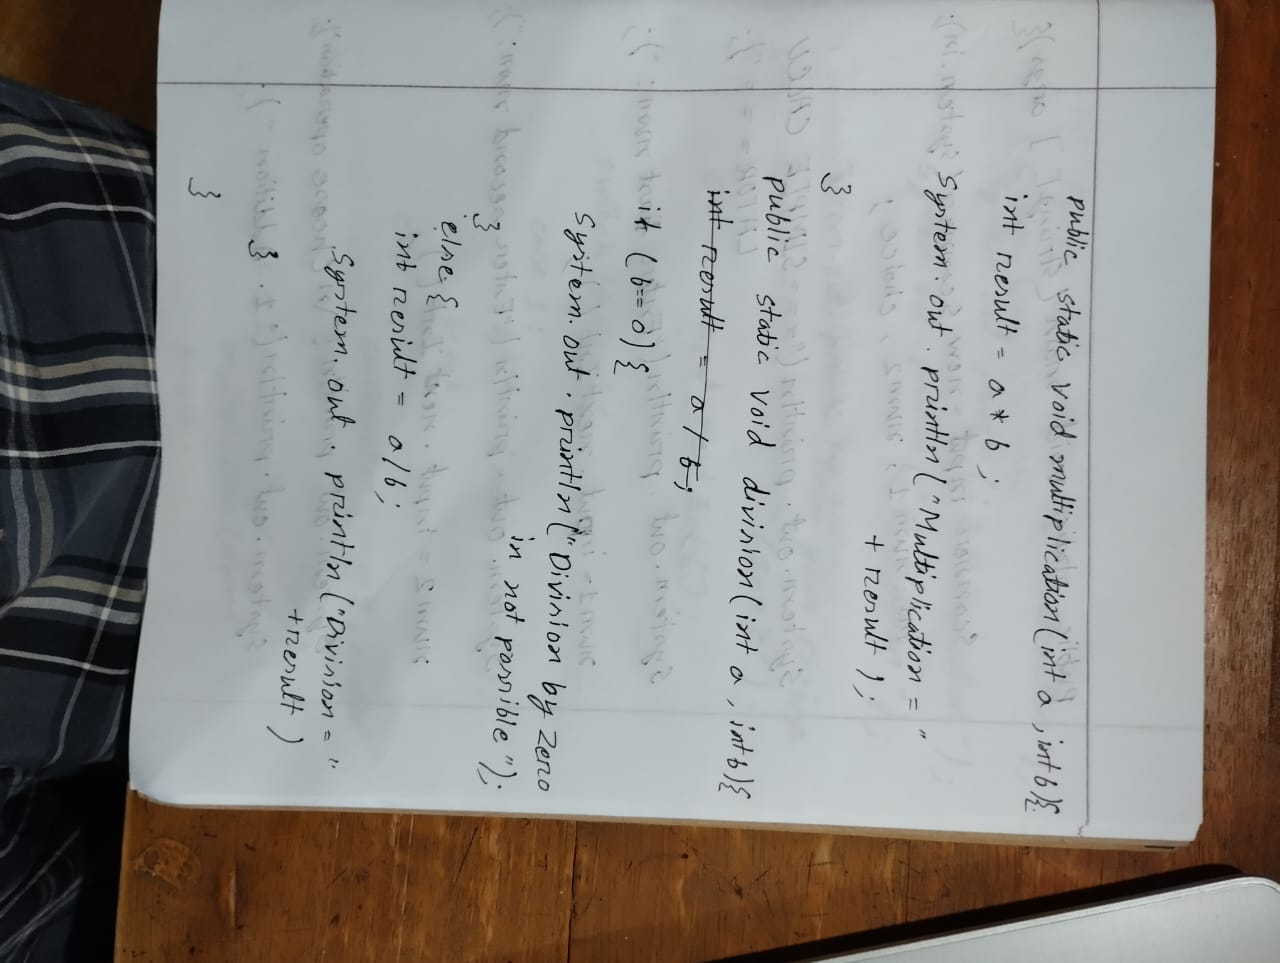 public static void multiplication(int a, int b){
int result = a * b;
System.out.println("Multiplication = "
+ result);
}
public static void division(int a, int b){
int result = a / b;
if (b==0){
System.out.println("Division by zero
is not possible");
}
else {
int result = a/b;
System.out.println("Division = "
+result)
}
}